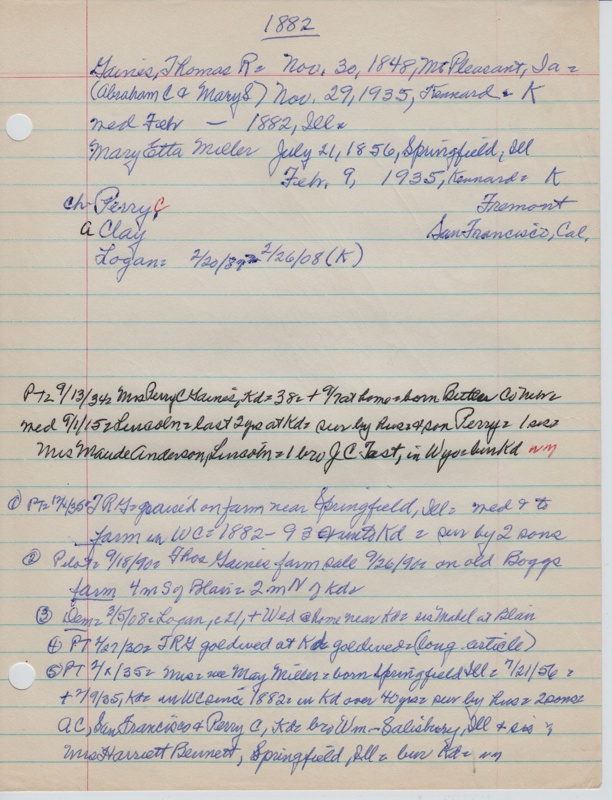 1882
Gaines, Thomas R = Nov. 30, 1848, Mt Pleasant, Ia =
(Abraham C & Mary S) Nov. 29, 1935, Kennard = K
med Feb — 1882, Ill =
Mary Etta Miller July 21, 1856, Springfield, Ill
Feb. 9, 1935, Kennard = K
ch Perry C Fremont
A Clay San Francisco, Cal.
Logan = 2/20/87 = 2/26/08 (K)
PT = 9/13/34 = Mrs Perry C Gaines, Kd = 38 = + 9/7 at home = born Butler Co Nebr =
med 9/1/15 = Lincoln = last 2 yrs at Kd = sur by hus = & son Perry = 1 sis =
Mrs Maude Anderson, Lincoln = 1 bro J C Fast, in Wyo = bur Kd nm
① PT = 12/5/35 = TRG = graised on farm near Springfield, Ill = med & to
farm in WC = 1882 - 93 into Kd = sur by 2 sons
② Pilot = 9/18/90 = Thos Gaines farm sale 9/26/90 = on old Boggs
farm 4 m S of Blair = 2 m N of Kd =
③ Dem = 3/5/08 = Logan, = 21, + Wed @ home near Kd = sis Mabel at Blair
④ PT 4/27/30 = TRG goldwed at Kd goldwed = (long article)
⑤ PT 2/x/35 = Mrs = nee May Miller = born Springfield Ill = 7/21/56 =
+ 2/9/35, Kd = in WC since 1882 = in Kd over 40 yrs = sur by hus = 2 sons =
A C, San Francisco & Perry C, Kd = bro Wm - Salisbury, Ill & sis =
Mrs Harriett Bennett, Springfield, Ill = bur Kd = nm